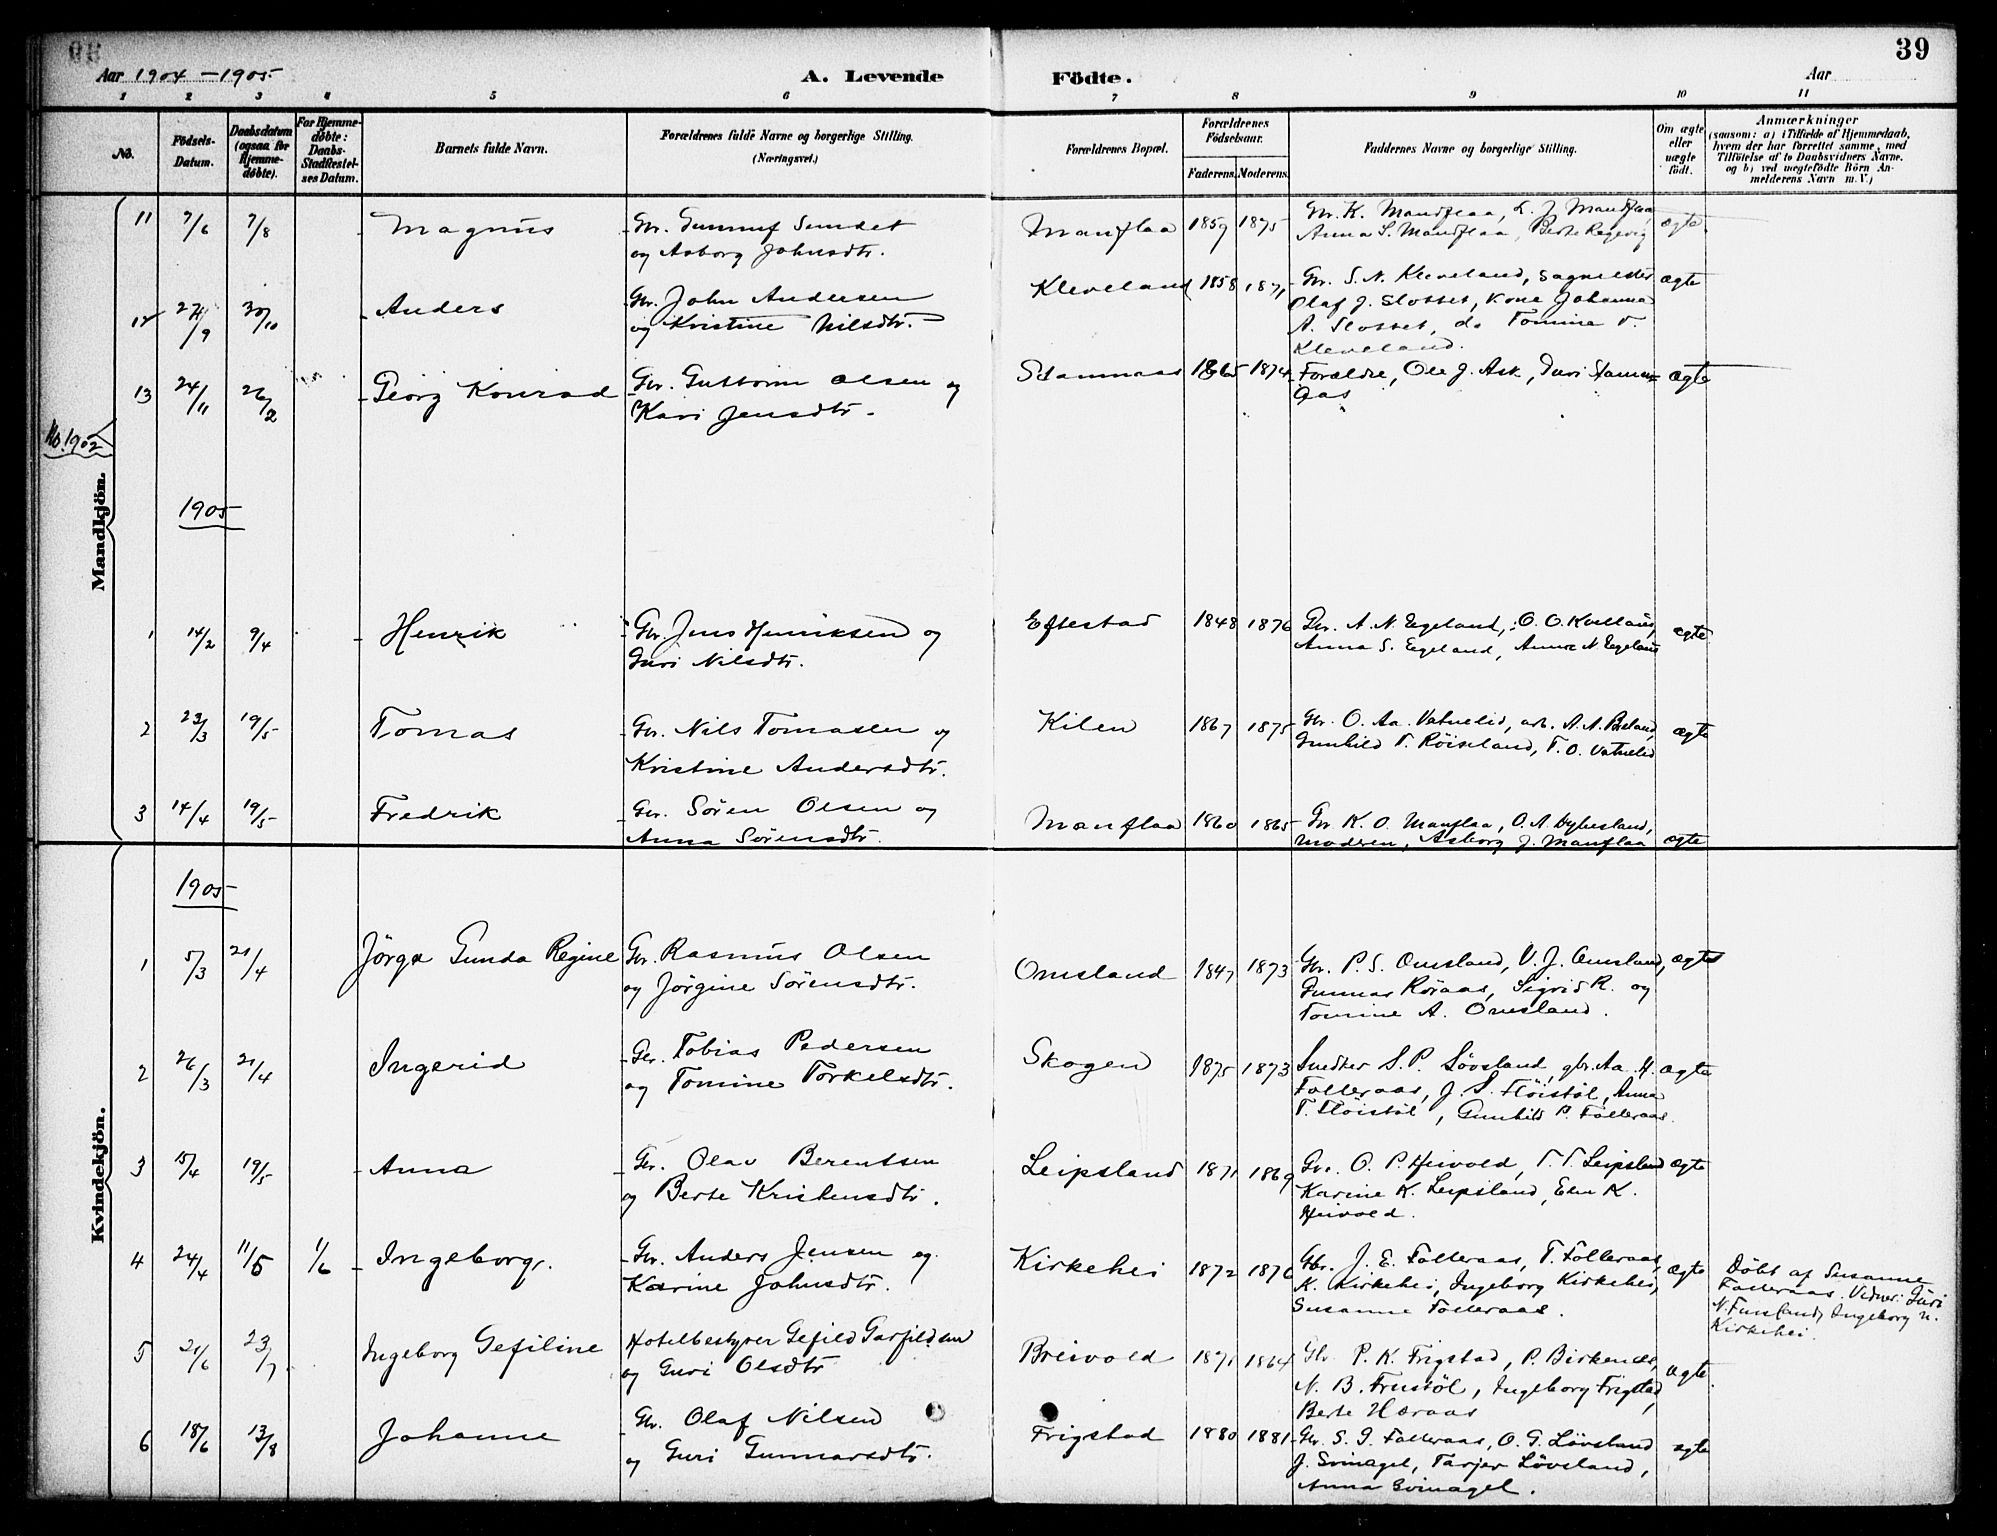 39
Aar 1904 – 1905
A. Levende Födte.
Aar
1 2 3 4 5 6 7 8 9 10 11
No.
Födsels-Datum.
Daabsdatum (ogsaa for Hjemme-döbte).
For Hjemme-döbte: Daabs-Stadfæstel-ses Datum.
Barnets fulde Navn.
Forældrenes fulde Navne og borgerlige Stilling.
(Næringsvei.)
Forældrenes Bopæl.
Forældrenes Födselsaar.
Faderens. Moderens.
Faddernes Navne og borgerlige Stilling.
Om ægte eller uægte födt.
Anmærkninger
(saasom: a) i Tilfælde af Hjemmedaab,
hvem der har forrettet samme, med
Tilföielse af to Daabsvidners Navne,
og b) ved uægtefödte Börn An-
melderens Navn m. V.)
Mandkjön.
No. 1902
11 7/6 7/8 Magnus Gbr. Gunnuf Sundet Manflaa 1859 1875 Gbr. K. Mandflaa, L. J. Mandflaa, ægte
og Asborg Johnsdtr. Anna S. Mandflaa, Berte
12 24/9 30/10 Anders Gbr. John Andersen Kleveland 1858 1871 Gbr. S. N. Kleveland, ægte
og Kristine Nilsdtr. Olaf J. Slottet, Kone Johanna
A. Slottet, do Tomine T.
Kleveland.
13 24/11 26/2 Georg Konrad Gbr. Guttorm Olsen og Stamnaas 1865 1874 Forældre, Ole J. Ask, Guri ægte
Kari Jensdtr.
1905
1 14/2 9/4 Henrik Gbr. Jens Henriksen og Eftestad 1848 1876 Gbr. A. N. Egeland, O. O. ægte
Guri Nilsdtr. Anna S. Egeland, Anna N. Egeland
2 23/3 19/5 Tomas Gbr. Nils Tomassen og Kilen 1867 1875 Gbr. O. Aa. Vatnelid, arb. A. A. ægte
Kristine Andersdtr. Gunhild T. Röiseland, T. O. Vatnelid
3 14/4 19/5 Fredrik Gbr. Sören Olsen og Manflaa 1860 1865 Gbr. K. O. Manflaa, O. A. Hybesland,
Anna Sörensdtr. Moderen, Asborg J. Manflaa ægte
Kvindekjön.
1905
1 5/3 21/4 Jörga Gunda Regine Gbr. Rasmus Olsen Omsland 1847 1873 Gbr. P. S. Omsland, V. J. Omsland, ægte
og Jörgine Sörensdtr. Gunnar Röraas, Sigrid R. og
Tomine A. Omsland.
2 26/3 21/4 Ingerid Gbr. Tobias Pedersen Skogen 1875 1873 Snedker S. P. Lövsland, gbr. Aa. H. ægte
og Tomine Torkelsdtr. Folleraas, J. S. Flöistöl, Anna
T. Flöistöl, Gunhild P. Folleraas.
3 15/4 19/5 Anna Gbr. Olav Berentsen Leipsland 1871 1869 Gbr. O. P. Heivold, T. T. Leipsland ægte
og Berte Kristensdtr. Karine K. Leipsland, Elen K.
Heivold.
4 24/4 11/5 1/6 Ingeborg. Gbr. Anders Jensen og Kirkehei 1872 1876 Gbr. J. E. Folleraas, T. Folleraas, ægte Döbt af Susanne
Karine Johnsdtr. K. Kirkehei, Ingeborg Kirkehei, Folleraas. Vidner: Guri
Susanne Folleraas. N. Fuusland, Ingeborg N.
Kirkehei.
5 21/6 23/7 Ingeborg Gefiline Hotelbestyrer Gefild Garfildsen Breivold 1871 1864 Gbr. P. K. Frigstad, P. Birkenes, ægte.
og Guri Olsdtr N. B. Freistöl, Ingeborg Frigstad,
Berte Heraas
6 18/6 13/8 Johanne Gbr. Olaf Nilsen Frigstad 1880 1881 Gbr. S. J. Folleraas, O. G. Lövsland ægte
og Guri Gunnarsdtr. J. Svinagel, Tarjer Lövsland,
Anna Svinagel.